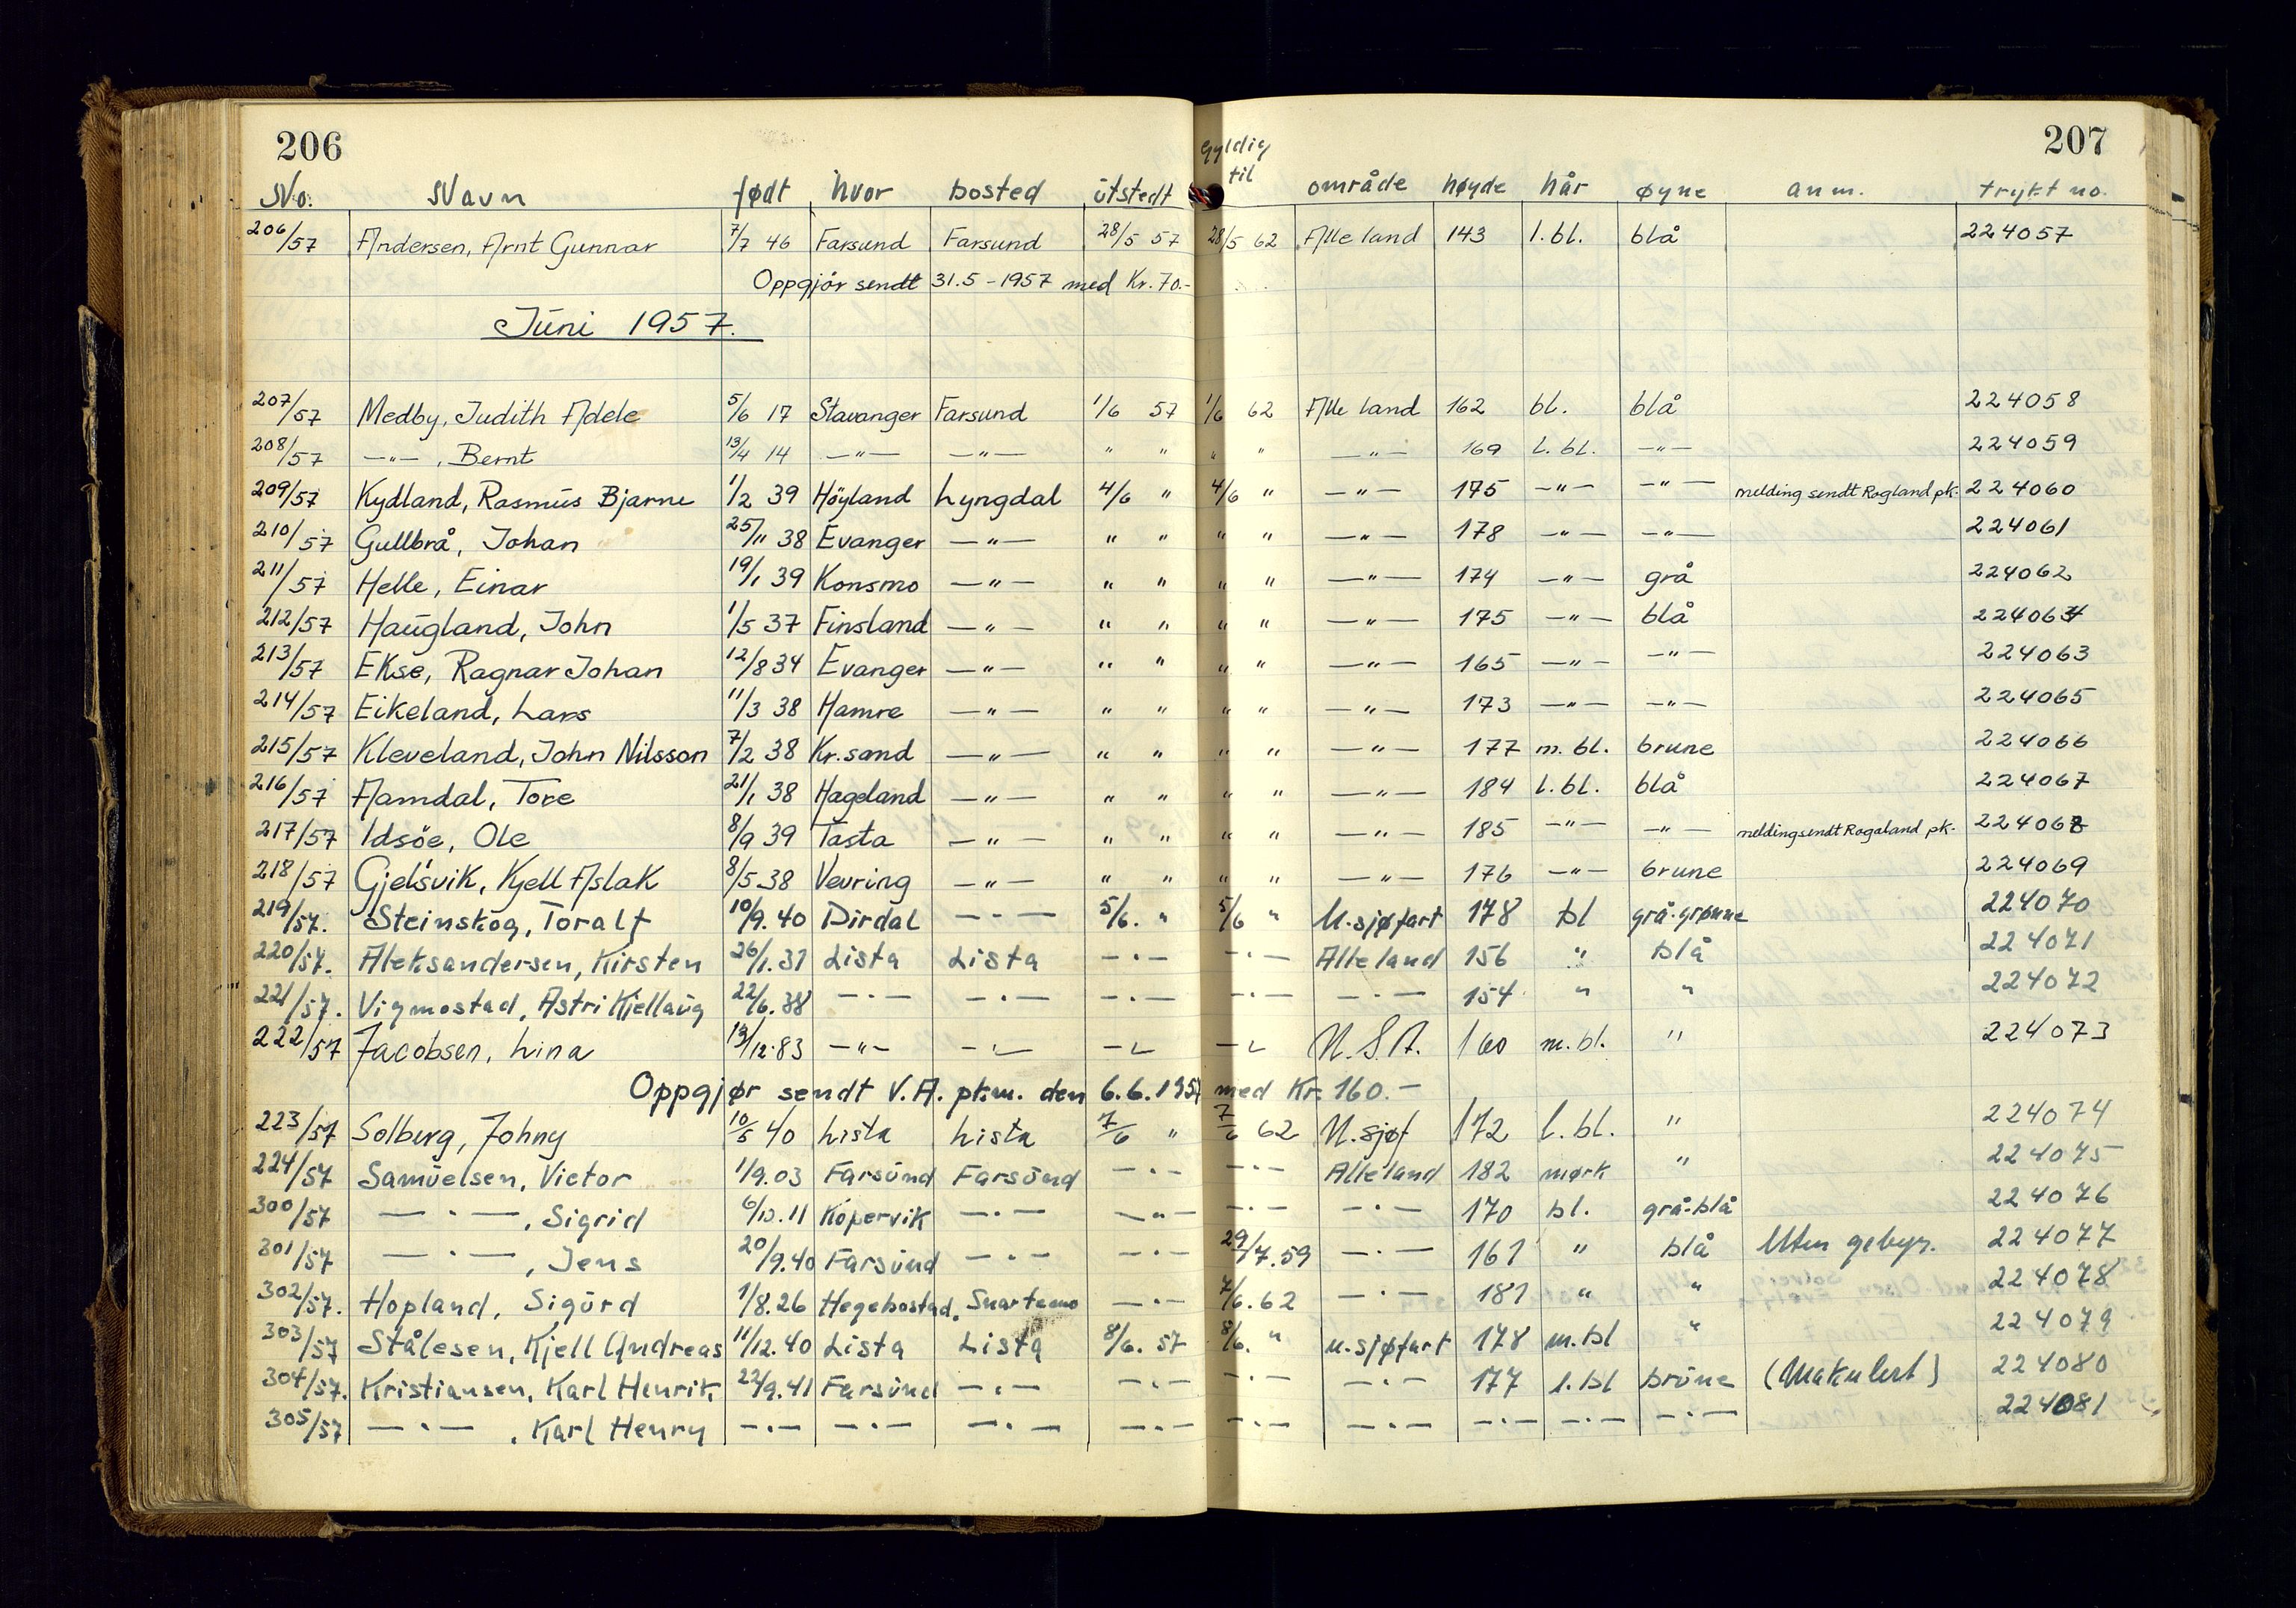 206
207
Gyldig
til
No. Navn født hvor bosted utstedt område høyde hår øyne anm. trykt no.
206/57 Andersen, Arnt Gunnar 7/7 46 Farsund Farsund 28/5 57 28/5 62 Alle land 143 l.bl. blå 224057
Oppgjør sendt 31.5-1957 med Kr. 70.-
Juni 1957.
207/57 Medby, Judith Adele 5/6 17 Stavanger Farsund 1/6 57 1/6 62 Alle land 162 bl. blå 224058
208/57 —"—, Bernt 13/4 14 —"— —"— " " " " —"— 169 l.bl. —"— 224059
209/57 Kydland, Rasmus Bjarne 1/2 39 Höyland Lyngdal 4/6 " 4/6 " —"— 175 —"— —"— melding sendt Rogland pk. 224060
210/57 Gullbrå, Johan 25/11 38 Evanger —"— " " " " —"— 178 —"— —"— 224061
211/57 Helle, Einar 19/1 39 Konsmo —"— " " " " —"— 174 —"— grå 224062
212/57 Haugland, John 1/5 37 Finsland —"— " " " " —"— 175 —"— blå 224064
213/57 Ekse, Ragnar Johan 12/8 34 Evanger —"— " " " " —"— 165 —"— —"— 224063
214/57 Eikeland, Lars 11/3 38 Hamre —"— " " " " —"— 173 —"— —"— 224065
215/57 Kleveland, John Nilsson 7/2 38 Kr.sand —"— " " " " —"— 177 m.bl. brune 224066
216/57 Aamdal, Tore 21/1 38 Hageland —"— " " " " —"— 184 l.bl. blå 224067
217/57 Idsöe, Ole 8/9 39 Tasta —"— " " " " —"— 185 —"— —"— melding sendt Rogaland pk. 224068
218/57 Gjelsvik, Kjell Aslak 8/5 38 Vevring —"— " " " " —"— 176 —"— brune 224069
219/57. Steinskog, Toralf 10/9.40 Dirdal —"— 5/6. " 5/6 " U.sjøfart 178 bl grå-grønne 224070
220/57. Aleksandersen, Kirsten 26/1.37 Lista Lista —"— —"— Alle land 156 " blå 224071
221/57. Vigmostad, Astri Kjellaug 22/6.38 —"— —"— —"— —"— —"— 154 " " 224072
222/57 Jacobsen, Lina 13/12.83 —"— —"— —"— —"— U.S.A. 160 m.bl. " 224073
Oppgjør sendt V.A. pk.m. den 6.6.1957 med Kr. 160.—
223/57 Solberg, Johny 10/5 40 Lista Lista 7/6 " 7/6 62 U.sjøf 172 l.bl. " 224074
224/57 Samuelsen, Victor 1/9.03 Farsund Farsund —"— —"— Alle land 182 mørk " 224075
300/57 —"—, Sigrid 6/12.11 Kopervik —"— —"— —"— —"— 170 bl. grå-blå 224076
301/57 —"—, Jens 20/9.40 Farsund —"— —"— 29/7.59 —"— 161 " blå Uten gebyr. 224077
302/57. Hopland, Sigurd 1/8.26 Hegebostad. Snartemo —"— 7/6.62 —"— 181 " " 224078
303/57 Stålesen, Kjell Andreas 11/12.40 Lista Lista 8/6. 57 8/6. " u.sjøfart 178 m.bl " 224079
304/57. Kristiansen, Karl Henrik 22/9.41 Farsund —"— —"— —"— —"— 177 l.bl brune (Makulert) 224080
305/57 —"—, Karl Henry —"— —"— —"— —"— —"— —"— —"— —"— —"— 224081